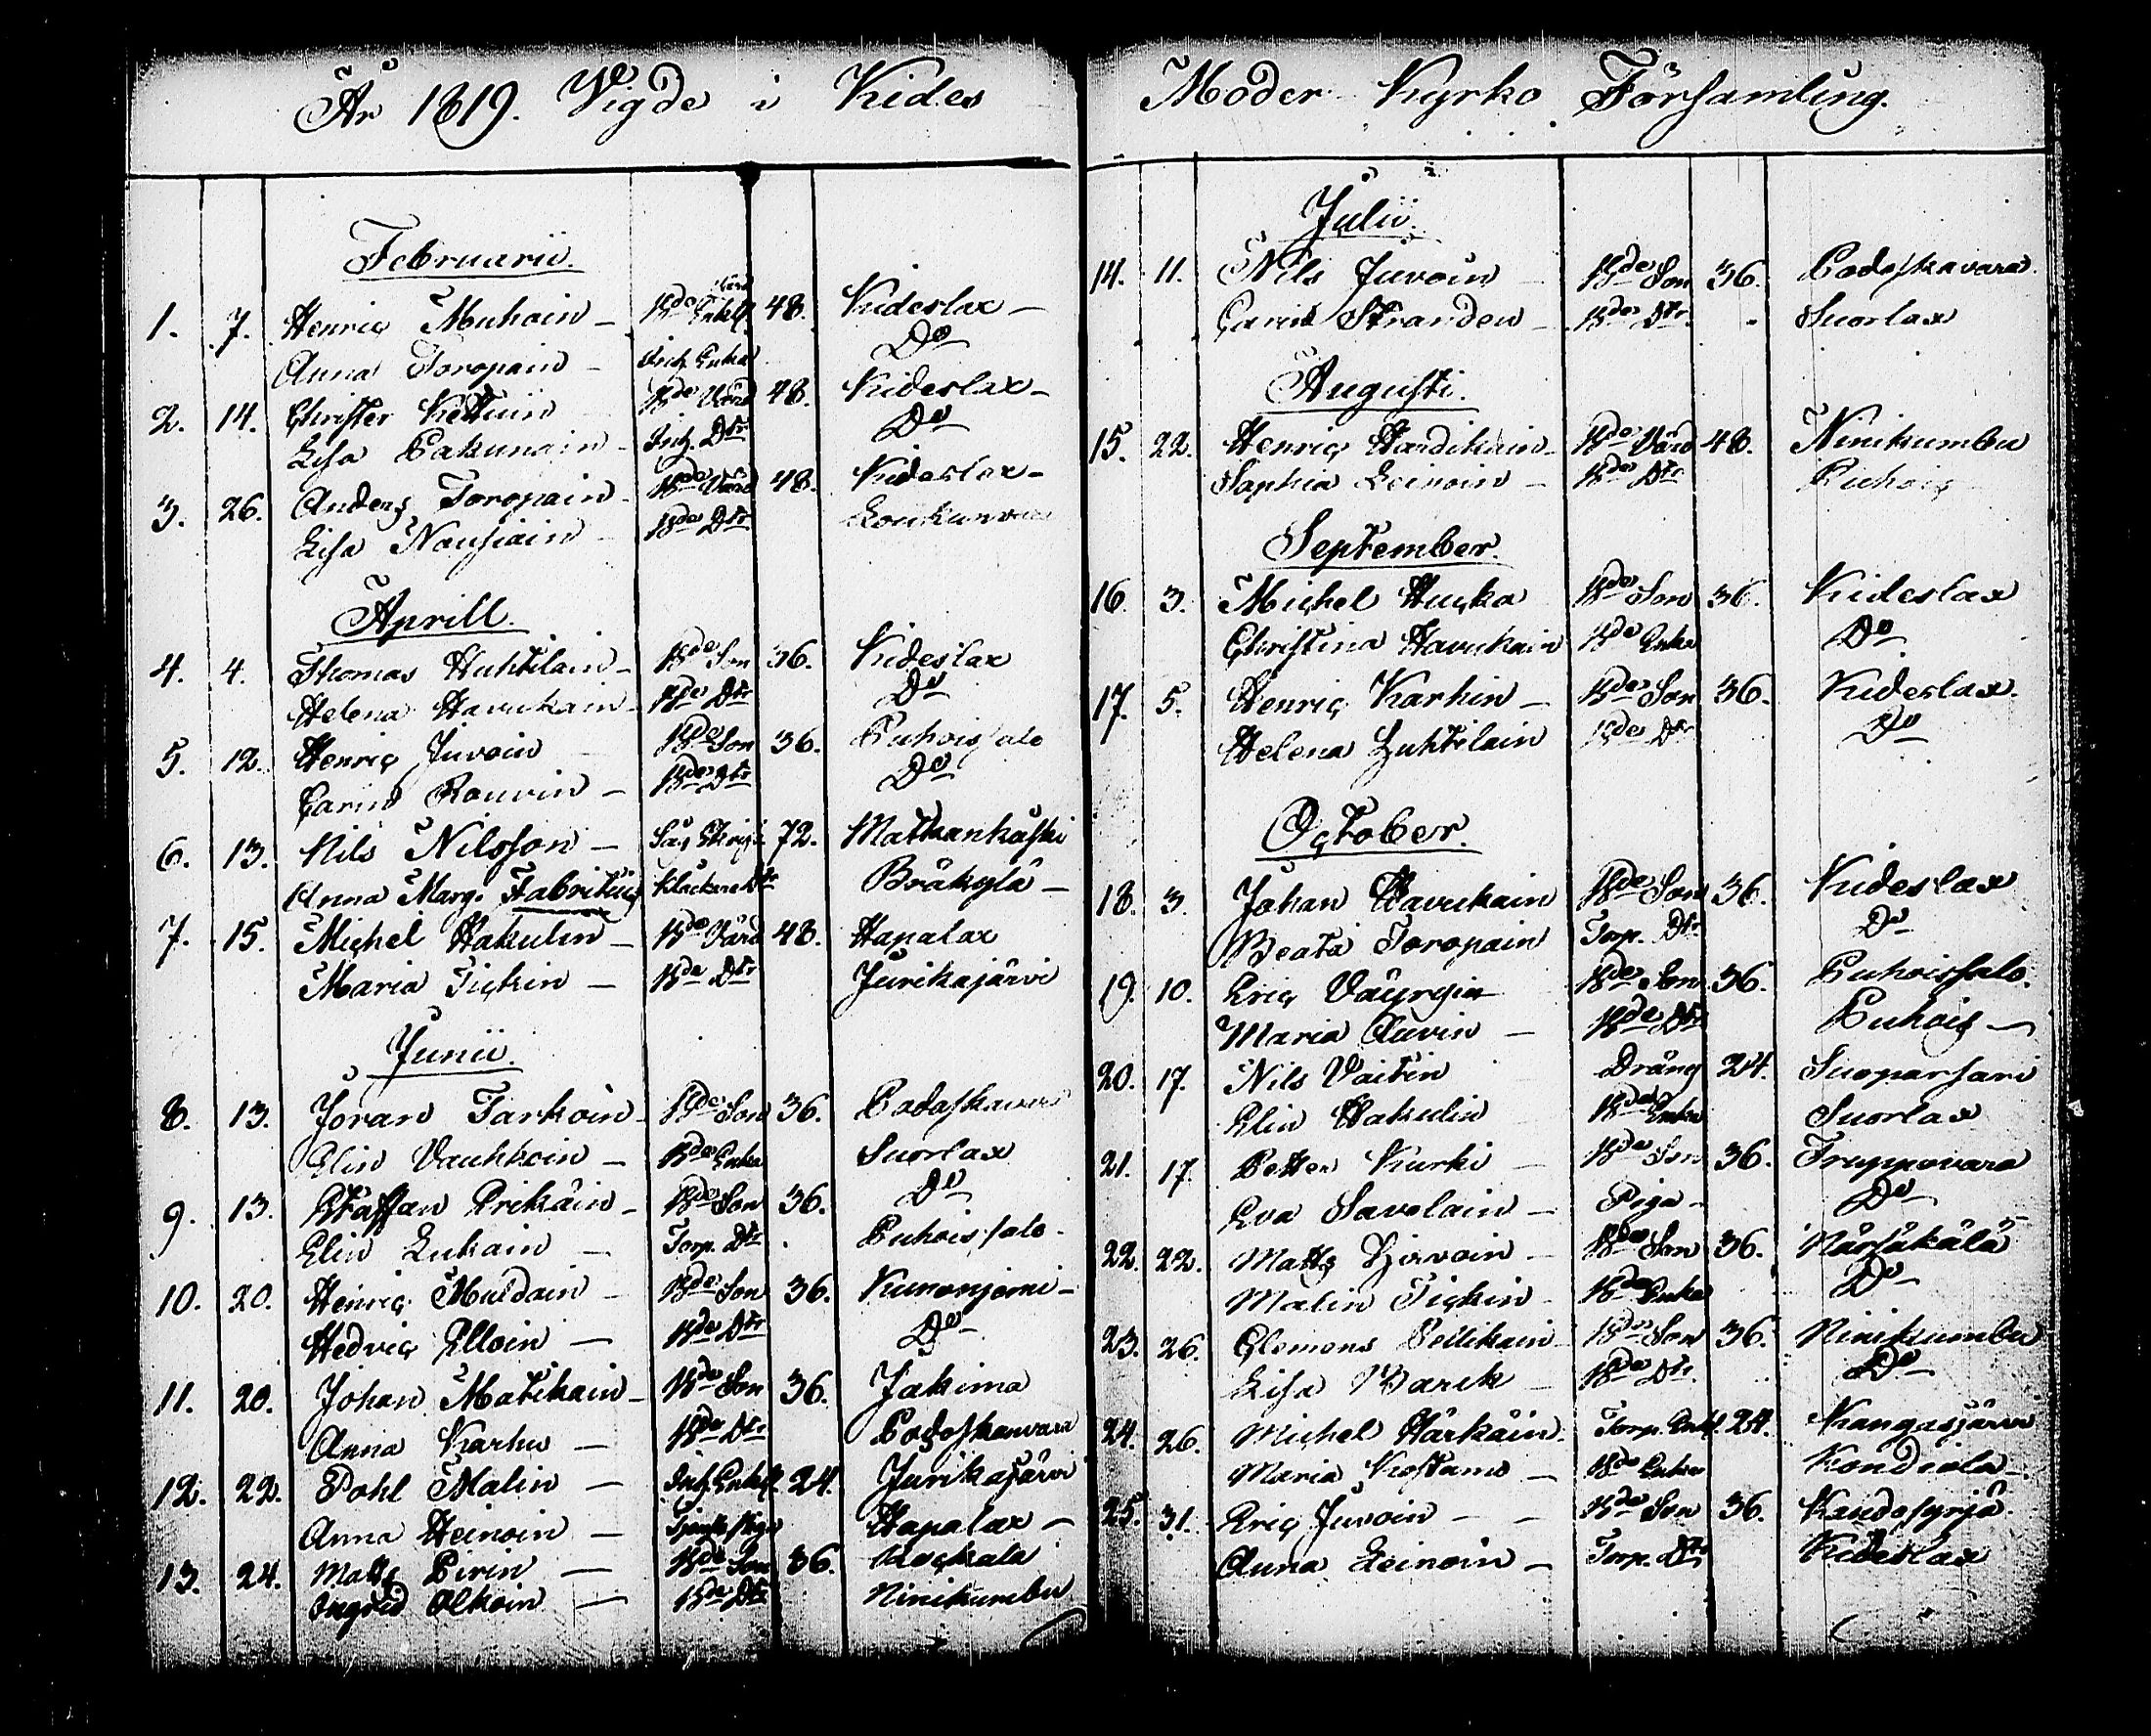 År 1819. Vigde i Kides
Februarii.
1. 7. Henric Muhoin – Bde Enkl. 48. Kideslax –
Anna Toropain – Inh. Enka Do
2. 14. Christer Kettuin Bde Värd 48. Kideslax –
Lisa Pakunain – Inh. Dtr Do
3. 26. Anders Toropain – Bde Värd 48. Kideslax –
Lisa Nousiain – Bde Dtr
Aprill.
4. 4. Thomas Huhtilain – Bde Son 36. Kideslax
Helena Havukain – Bde Dtr Do
5. 12. Henric Juvoin – Bde Son 36. Puhoissalo
Carin Rouvin – Bde Dtr Do
6. 13. Nils Nilsson – Såg 72. Matkankåski
Anna Marg. Fabritius Klockare Dtr Bräkylä –
7. 15. Michel Hakulin – Bde Värd 48. Hapalax
Maria Tickin – Bde Dtr Jurikajärvi
Junii.
8. 13. Jöran Tarkoin – Bde Son 36. Podoskavara
Elin Vauhkoin – Bde Enka Suorlax
9. 13. Staffan Erikäin – Bde Son 36. Do
Elin Lukain – Torp. Dtr Puhoissalo.
10. 20. Henric Muldain – Bde Son 36. Kunonjemi –
Hedvic Elloin – Bde Dtr Do
11. 20. Johan Matikain – Bde Son 36. Jakima
Anna Karhu – Bde Dtr Podoskavara
12. 22. Pohl Malin – Inh. Enkl. 24. Jurikajärvi
Anna Heinoin – Hapalax –
13. 24. Matts Pirin – Bde Son 36. Kockala
Ingrid Olkoin – Bde Dtr Ninikumbu
Moder Kyrko Församling.
Julii.
14. 11. Nils Juvoin – Bde Son 36. Podoskavara.
Carin Stranden – Bde Dtr. Suorlax
Augusti.
15. 22. Henric Hardikain – Bde Värd 48. Ninikumbu
Sophia Leinoin – Bde Dtr Puhois
September.
16. 3. Michel Hucka Bde Son 36. Kideslax
Christina Havukain Bde Enka Do
17. 5. Henric Karhin – Bde Son 36. Kideslax.
Helena Luhtilain Bde Dtr Do
October.
18. 3. Johan Havukain Bde Son 36. Kideslax
Beata Toropain Torp. Dtr. Do
19. 10. Eric Väyryin Bde Son 36. Puhoissalo.
Maria Auvin – Bde Dtr Puhois –
20. 17. Nils Vaitin Dräng 24. Suoparsari
Elin Hakulin Bde Enka Suorlax
21. 17. Petter Kurki – Bde Son 36. Truppovara
Eva Savolain – Piga – Do
22. 22. Matts Hirvoin – Bde Son 36. Närsäkälä
Malin Tickin – Bde Enka Do
23. 26. Clemens Pellikain – Bde Son 36. Ninikumbu
Lisa Barck – Bde Dtr. Do
24. 26. Michel Härkäin. Torp. Enkl. 24. Kangasjärvi
Maria Kostamo – Bde Enka Kondiola –
25. 31. Eric Juvoin – – Bde Son 36. Kandosyrjä
Anna Leinoin – Torp. Dtr Kideslax